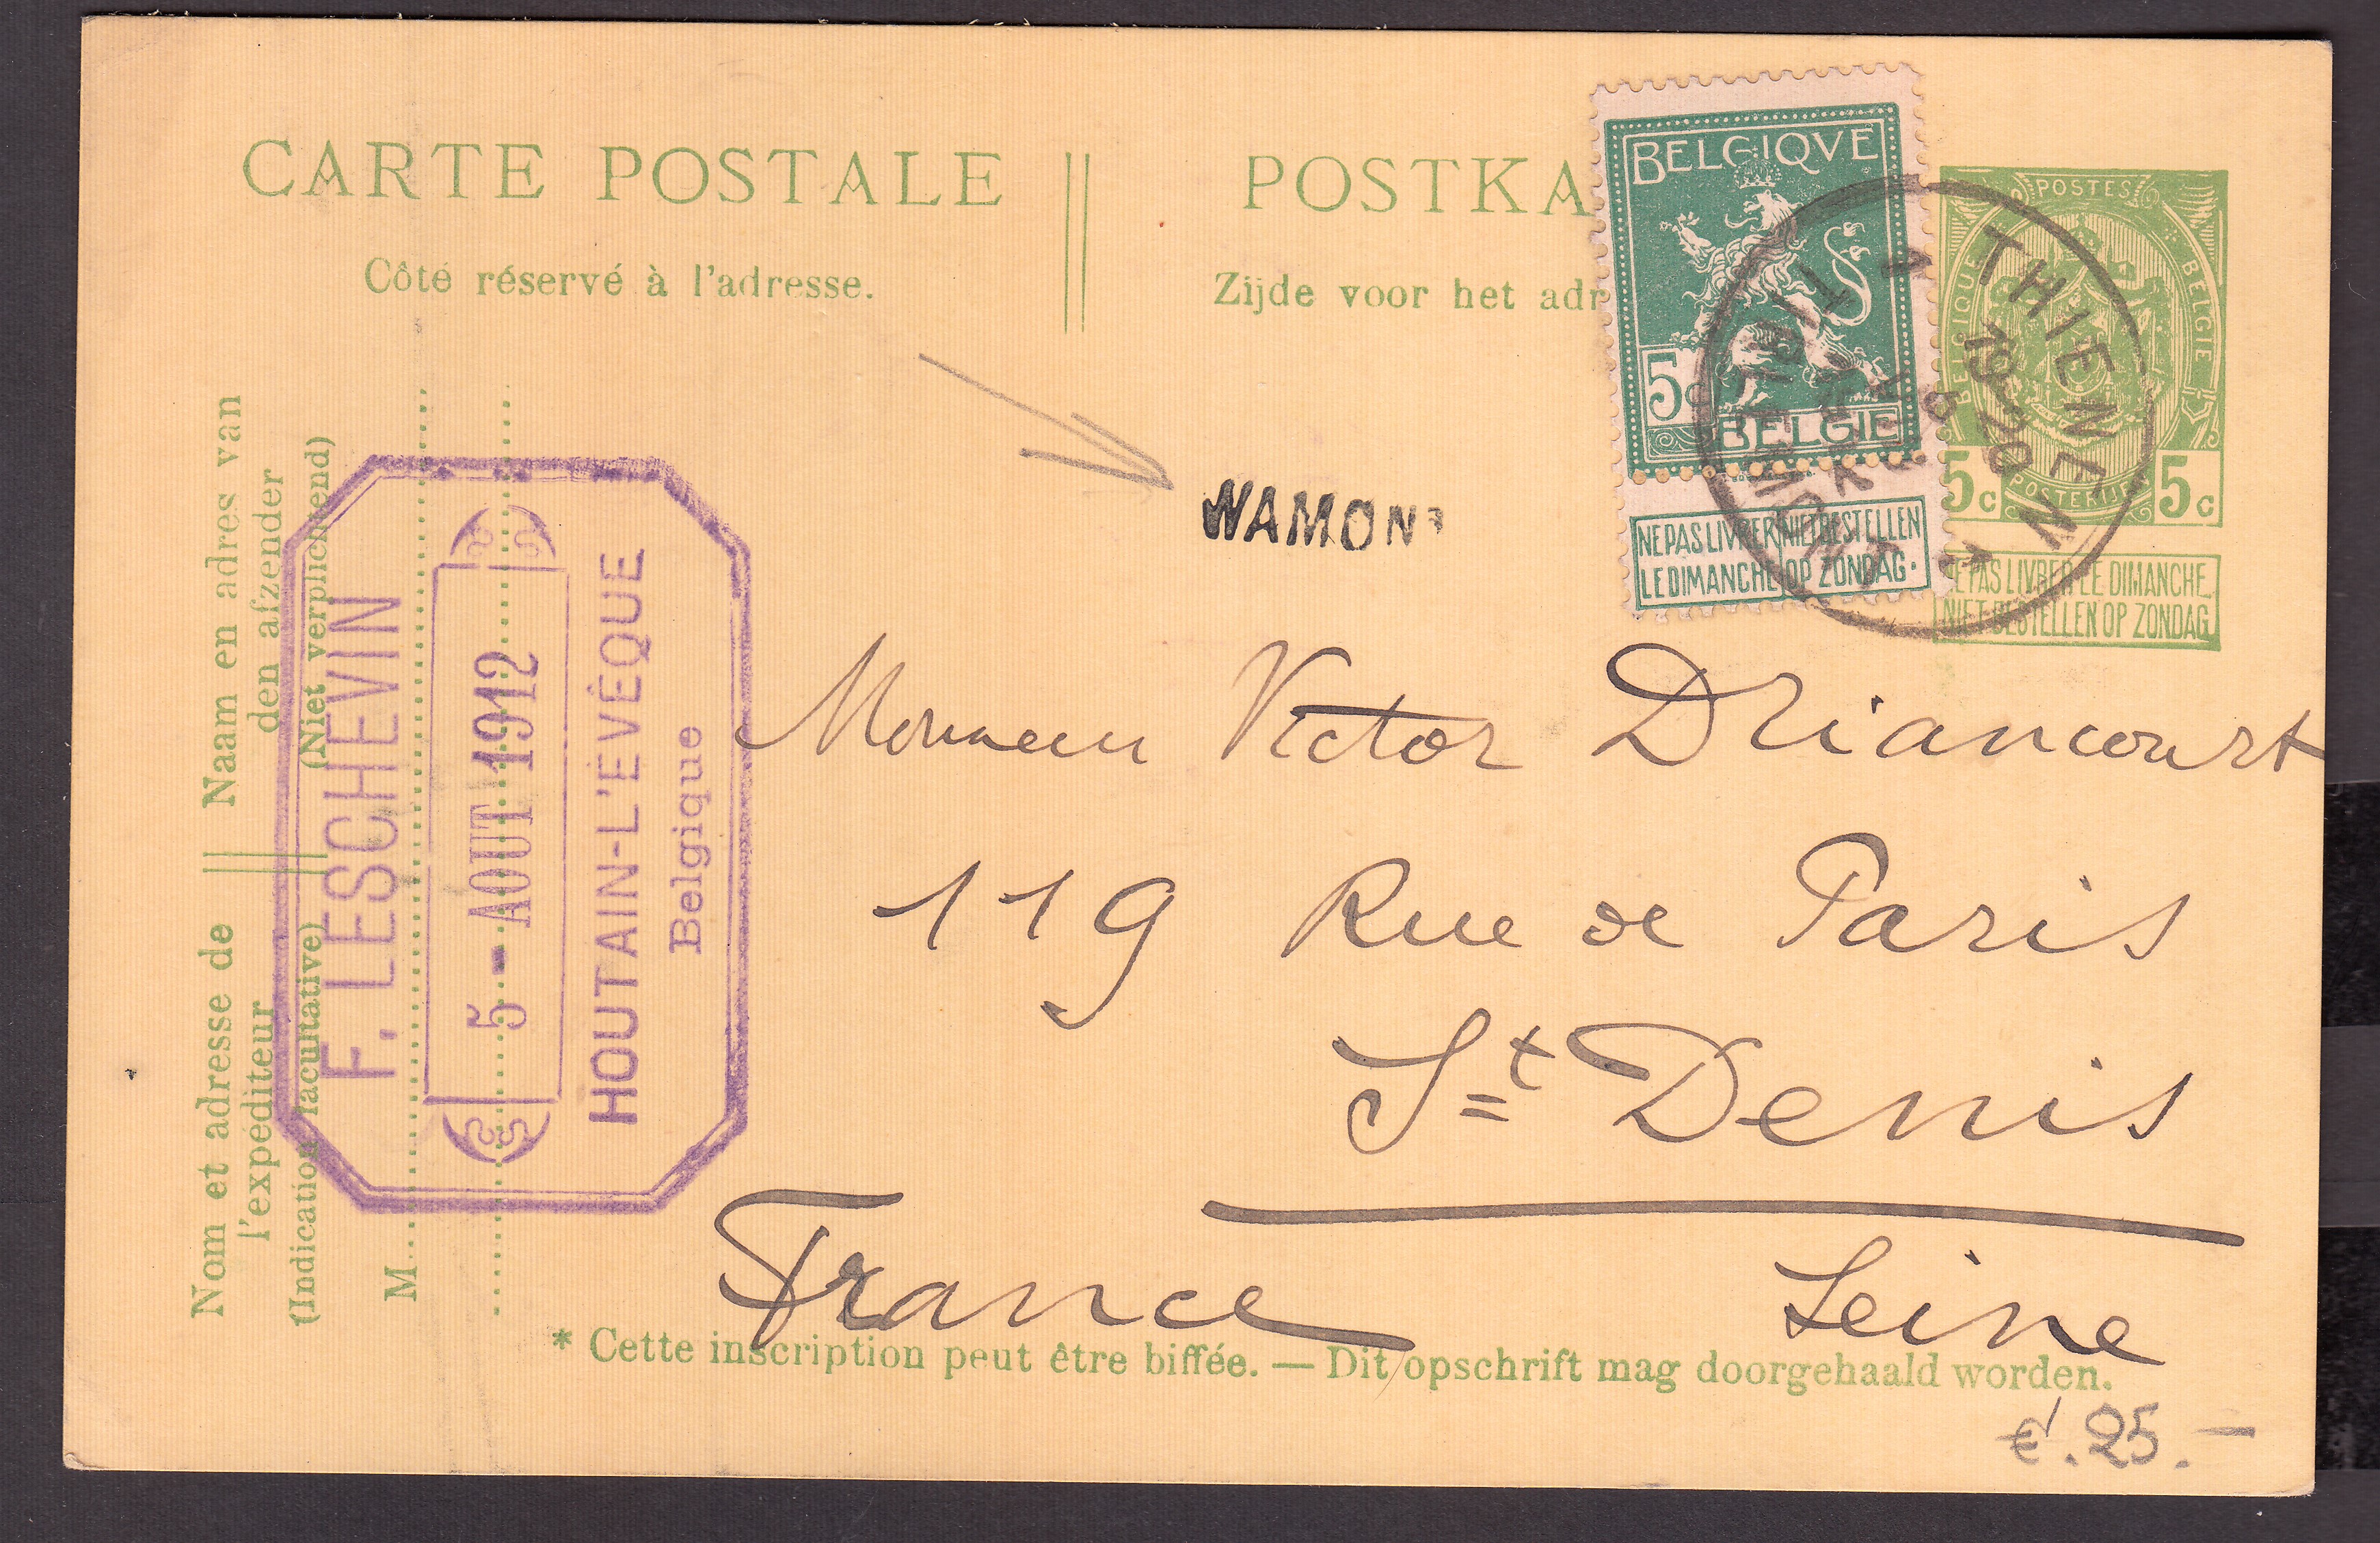 CARTE POSTALE
Côté réservé à l'adresse.
POSTKA
Zijde voor het adr
BELGIQVE
5c
BELGIE
NE PAS LIVRER LE DIMANCHE
NIET BESTELLEN OP ZONDAG.
POSTES
BELGIQUE
BELGIE
POSTERIJEN
5c 5c
NE PAS LIVRER LE DIMANCHE.
NIET BESTELLEN OP ZONDAG
THIENEN
19-20
TIRLEMONT
WAMONT
Naam en adres van
den afzender
(Niet verplichtend)
Nom et adresse de
l'expéditeur
(Indication facultative)
M
F. LESCHEVIN
5 - AOUT 1912
HOUTAIN-L'ÉVÊQUE
Belgique
Monsieur Victor Driancourt
119 Rue de Paris
St Denis
France Seine
* Cette inscription peut être biffée. — Dit opschrift mag doorgehaald worden.
€. 25.—